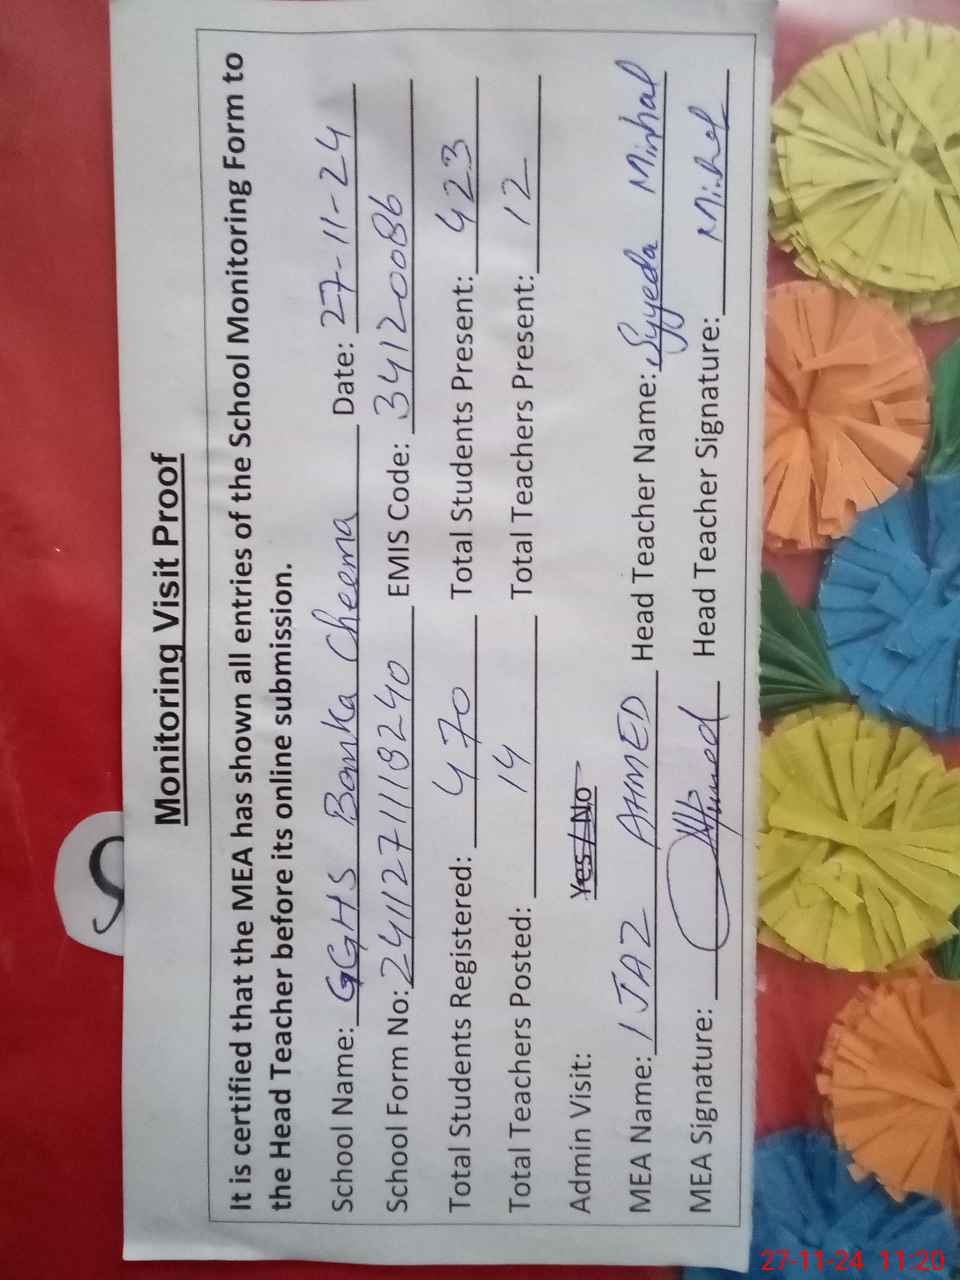 Monitoring Visit Proof
It is certified that the MEA has shown all entries of the School Monitoring Form to
the Head Teacher before its online submission.
School Name: GGHS Banka Cheema Date: 27-11-24
School Form No: 24112711118240 EMIS Code: 34120086
Total Students Registered: 470 Total Students Present: 423
Total Teachers Posted: 14 Total Teachers Present: 12
Admin Visit: Yes / No
MEA Name: IJAZ AHMED Head Teacher Name: Syyeda Minhal
MEA Signature: Ahmed Head Teacher Signature: Minhal
27-11-24 11:20